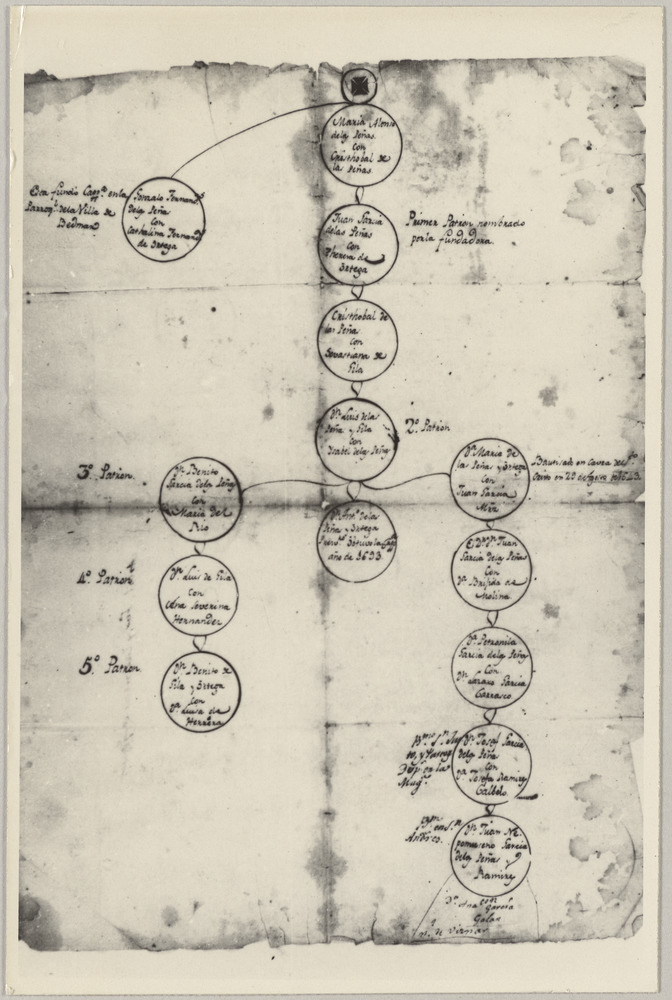 Maria Alonso
delas Peñas
con
Cristhobal de
las Peñas
Esta fundó Capp.ⁿ en la
Parroq.ˡ de la Villa de
Bedmar
Gonzalo Fernand.ˢ
dela Peña
con
Cathalina Fernand.ˢ
de Ortega
Juan Garcia
delas Peñas
con
Theresa de
Ortega
Primer Patron nombrado
por la fundadora.
Cristhobal de
las Peñas
con
Sevastiana de
Fila
Dⁿ. Luis delas
Peña y Fila
con
Isabel delas Peñas
2º Patron
3º Patron.
Dⁿ. Benito
Garcia delas Peñas
con
Maria del
Rio
Dª. Maria de
las Peñas y Ortega
con
Juan Garcia
Mra
en 29 de
dela
Peña y Ortega
año de 1693
4º Patron
Dⁿ. Luis de Fila
con
Ana Severina
Hernandez
Juan
Garcia delas Peñas
con
Dª. Brigida de
Molina
5º Patron
Dⁿ. Benito de
Fila y Ortega
con
Dª. Luisa de
Herrera
Dª. Petronila
Garcia delas Peñas
con
Dⁿ. Lazaro Garcia
Carrasco
en las
Dⁿ. Josef Garcia
delas Peñas
con
Dª. Josefa Ramirez
Galbelo
Dⁿ. Juan Ne-
pomuceno Garcia
delas Peñas y
Ramirez
Garcia
Galan
de Viznar